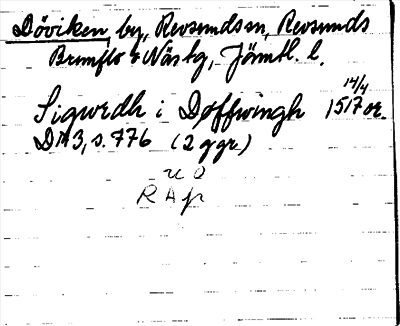 Döviken by, Revsunds sn, Revsunds
Brunflo o Näs tg, Jämtl. l.
Sigurdh i Døffwingh 14/4 1517 or.
DN 3, s. 776 (2 ggr)
u o
RAp